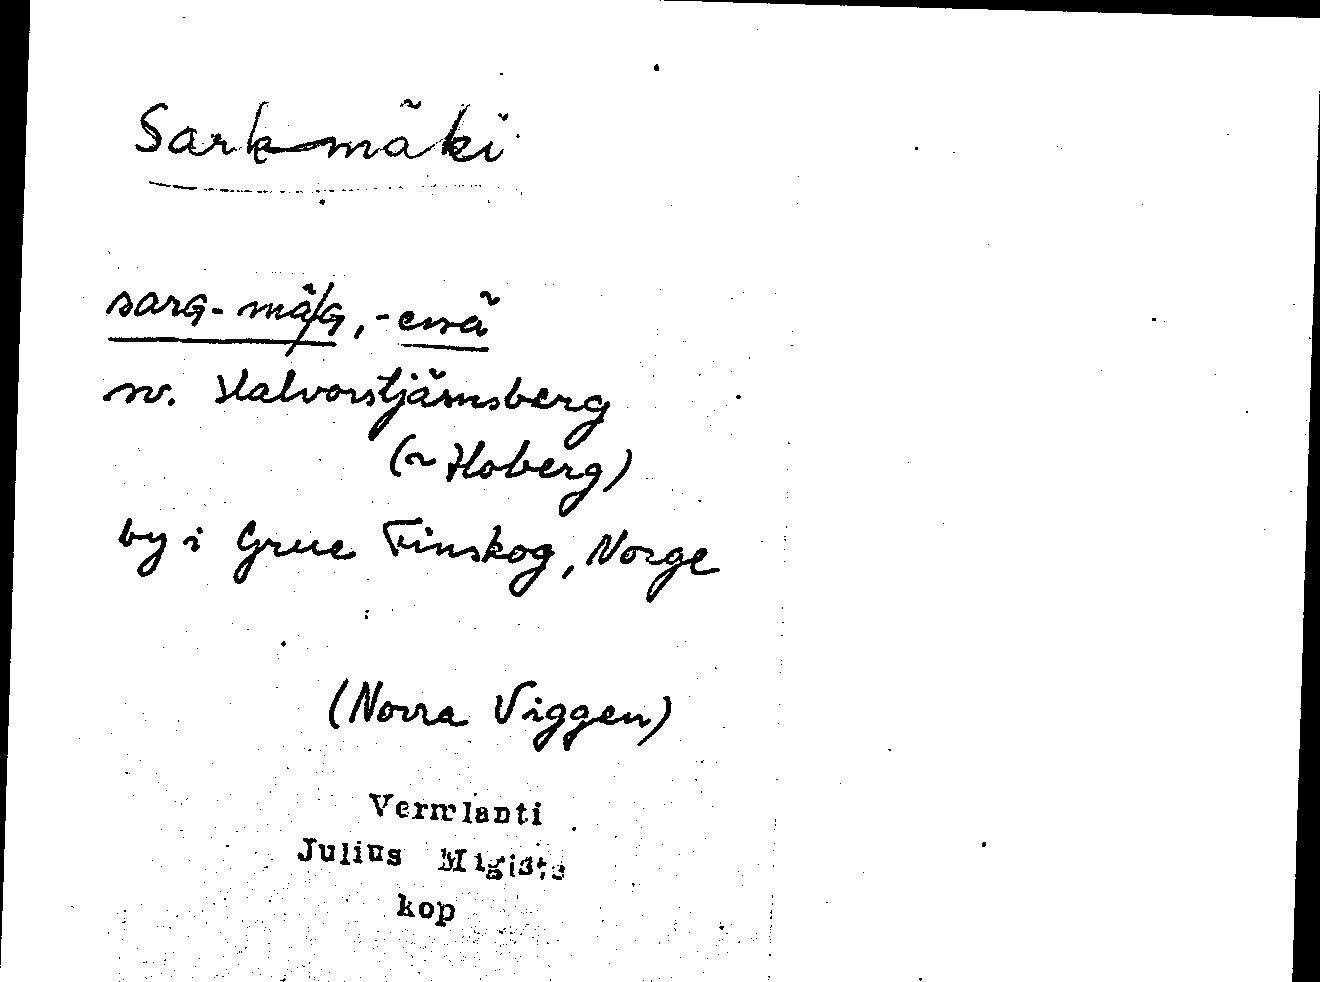 Sark-mäki
sarG-mä/G, -emä
sv. Halvorstjärnsberg
(~ Hoberg)
by i Grue Finskog, Norge
(Norra Viggen)
Vermlanti
Julius Mägiste
kop